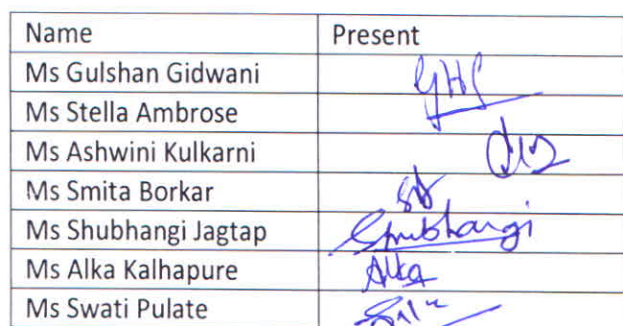 Name Present
Ms Gulshan Gidwani
Ms Stella Ambrose
Ms Ashwini Kulkarni
Ms Smita Borkar
Ms Shubhangi Jagtap Shubhangi
Ms Alka Kalhapure Alka
Ms Swati Pulate